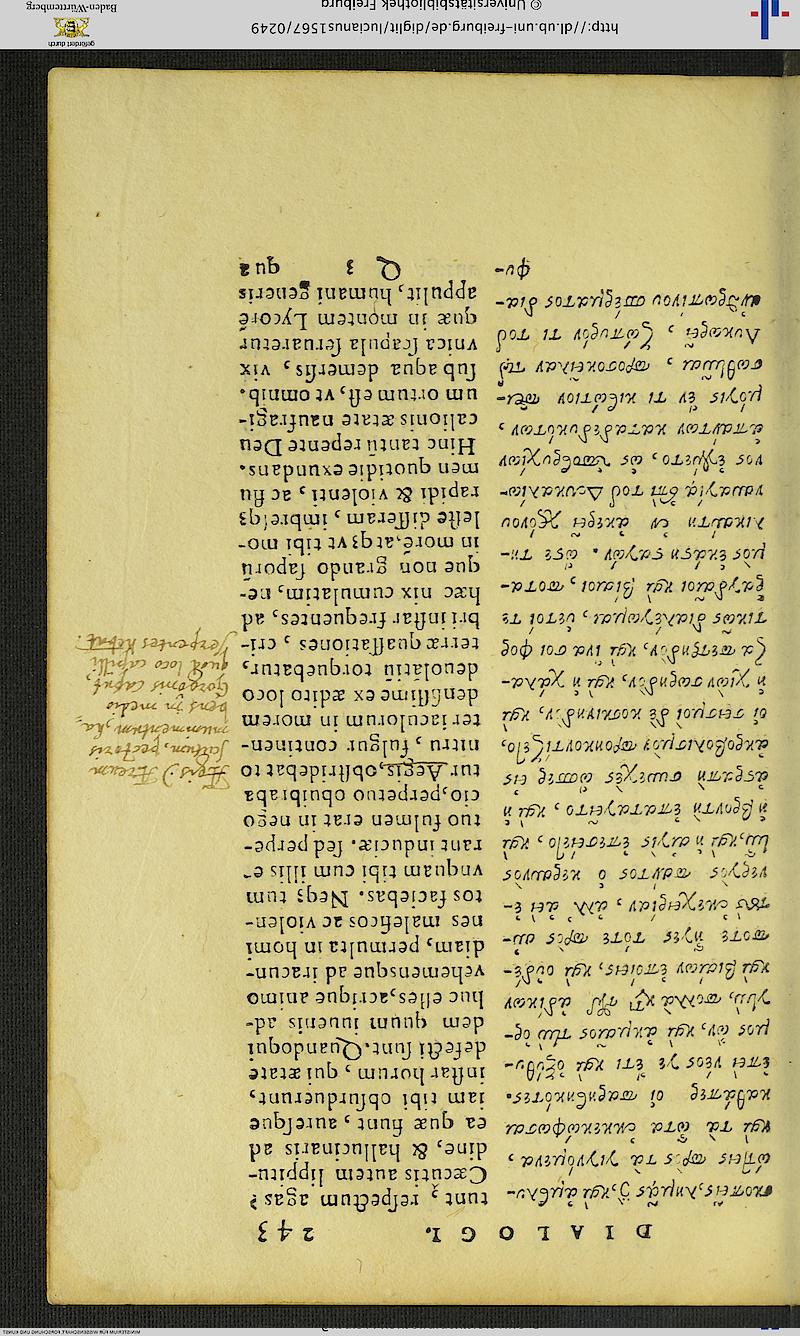 D I A L O G I. 243
λημᾷς δὲ καὶ ἀμβλυ-
ώττεις πρὸς τὰ γινόμενα,
καὶ τὰ ὦτα ἐκκεκώφωσαι
καθάπερ οἱ παρηβηκότες.
ἐπεὶ νέος γε ἔτι καὶ ὀξύθυ-
μος ὢν, καὶ ἀκμαῖος τὴν ὀρ-
γὴν, πολλὰ κατὰ τῶν ἀδίκων
καὶ βιαίων ἐποίεις, καὶ οὐδέ-
ποτε ἦγες τότε πρὸς αὐ-
τοὺς ἐκεχειρίαν, ἀλλὰ ἀεὶ ἐ-
νεργὸς πάντως ὁ κεραυνὸς
ἦν, καὶ ἡ αἰγὶς ἐπεσείετο, καὶ
ἡ βροντὴ ἐπαταγεῖτο, καὶ ἡ
ἀστραπὴ συνεχὲς ὥσπερ εἰς
ἀκροβολισμὸν προηκοντίζετο,
οἱ σεισμοὶ δὲ κοσκινηδὸν, καὶ
ἡ χιὼν σωρηδὸν, καὶ ἡ χάλα-
ζα πετρηδὸν, καὶ ἵνα σοι φορ
τικῶς διαλέγωμαι, ὑετοί τε
ῥαγδαῖοι καὶ βίαιοι, ποτα-
μὸς ἑκάστη σταγών. ὥστε τη-
λικαύτη ἐν ἀκαρεῖ χρόνου
ναυαγία ἐπὶ τοῦ Δευκαλίω-
νος ἐγένετο, ὡς ὑποβρυχίων
ἁπάντων καταδεδυκότων,
μόγις ἕν τι κιβώτιον περι-
σωθῆναι, προσοκεῖλαν τῷ
Λυκωρεῖ, ζώπυρόν τι τοῦ
ἀνθρωπίνου σπέρματος δια-
φυ-
tunt, respectum agas?
Cæcutis autem lippitu-
dine, & hallucinaris ad
ea quæ sunt, auresque
iam tibi obsurduerunt,
instar horum, qui ætate
defecti sunt. Quandoqui
dem quum iuuenis ad-
huc esses, acrique animo
vehemensque ad iracun-
diam, permultum in homi
nes maleficos ac violen-
tos faciebas. Neque tum
vnquam tibi cum illis e-
rant induciæ. sed perpe-
tuo fulmen erat in nego
cio, perpetuo obuibraba
tur Aegis, obstrepebat to
nitru, fulgur continen-
ter iaculorum in morem
ex ædito loco
torquebatur,
terræ quassationes, cri-
bri instar frequentes, ad
hæc nix cumulatim, ne-
que non grando saxorum
in morem. atque vt tibi mo-
leste differam, imbresque
rapidi & violenti, ac flu
men quotidie exundans.
Hinc tanta repente Deu
calionis ætate naufragi-
um ortum est, vt omnib.
sub aqua demersis, vix
vnica scapha seruaretur
quæ in montem Lycore
appulit, humani generis
Q 3
http://dl.ub.uni-freiburg.de/diglit/lucianus1567/0249
© Universitätsbibliothek Freiburg
gefördert durch
Baden-Württemberg
MINISTERIUM FÜR WISSENSCHAFT, FORSCHUNG UND KUNST